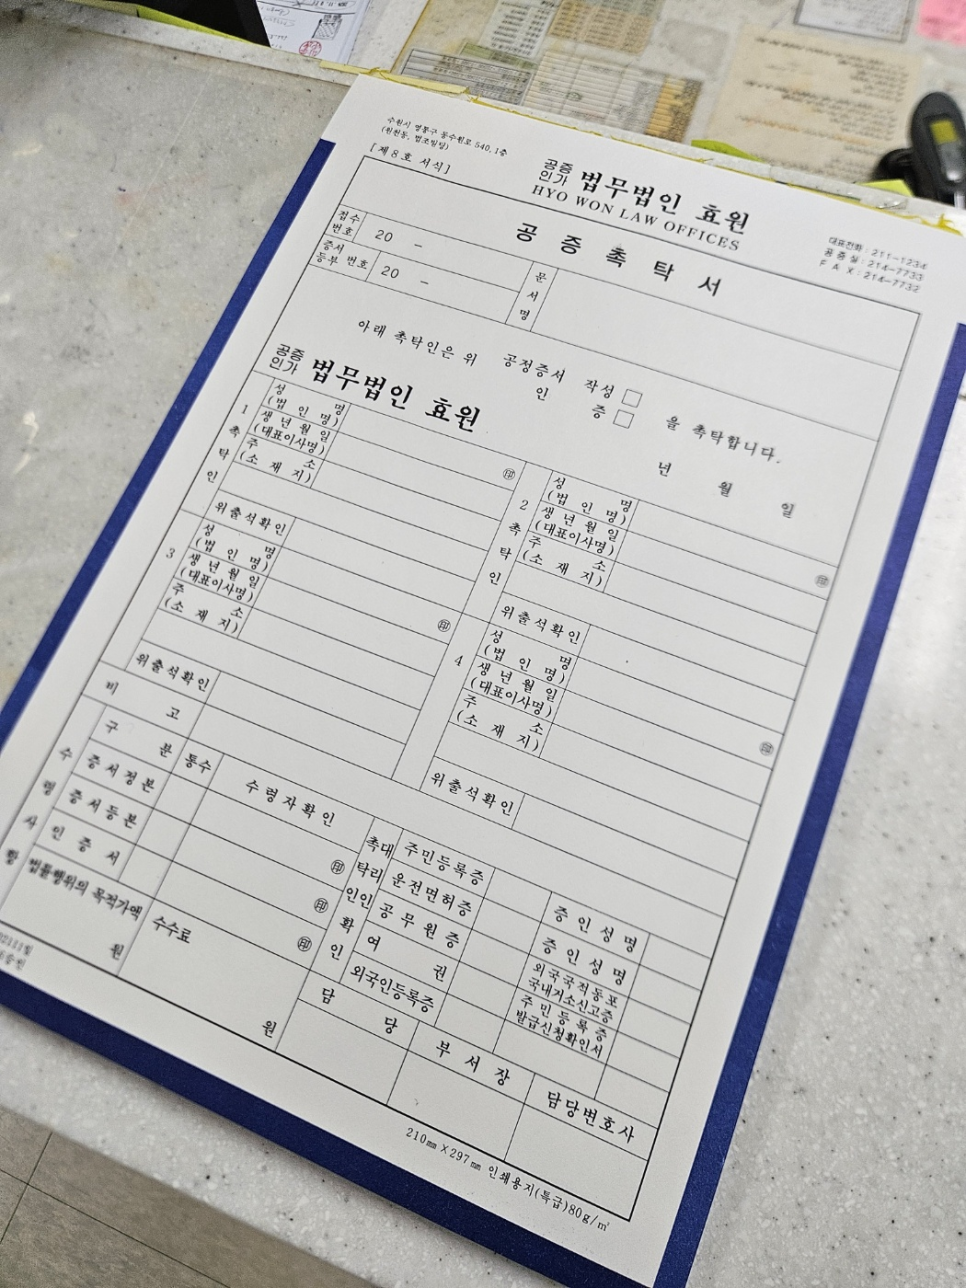 수원시 영통구 동수원로 540, 1층
(원천동, 법조빌딩)
[제8호 서식]
공증
인가 법무법인 효원
HYO WON LAW OFFICES
대표전화 : 211-1234
공 증 실 : 214-7733
F A X : 214-7732
공 증 촉 탁 서
접수
번호 20 -
증서
등부 번호 20 -
문
서
명
아래 촉탁인은 위 공정증서 작성 □
인 증 □
을 촉탁합니다.
년 월 일
공증
인가 법무법인 효원
1 촉 탁 인
성 명
(법 인 명)
생 년 월 일
(대표이사명)
주 소
(소 재 지)
위출석확인
㊞
2 촉 탁 인
성 명
(법 인 명)
생 년 월 일
(대표이사명)
주 소
(소 재 지)
위출석확인
㊞
3
성 명
(법 인 명)
생 년 월 일
(대표이사명)
주 소
(소 재 지)
위출석확인
㊞
4
성 명
(법 인 명)
생 년 월 일
(대표이사명)
주 소
(소 재 지)
위출석확인
㊞
비 고
수 령 사 항
구 분 통수 수령자확인
증서정본 ㊞
증서등본 ㊞
인 증 서 ㊞
법률행위의 목적가액
원
수수료
원
촉탁인
대리인
확
인
주민등록증
운전면허증
공 무 원 증
여 권
외국인등록증
증 인 성 명
증 인 성 명
외국국적동포
국내거소신고증
주민등록증
발급신청확인서
담 당
부 서 장
담당변호사
210㎜ X 297㎜ 인쇄용지(특급)80g/㎡